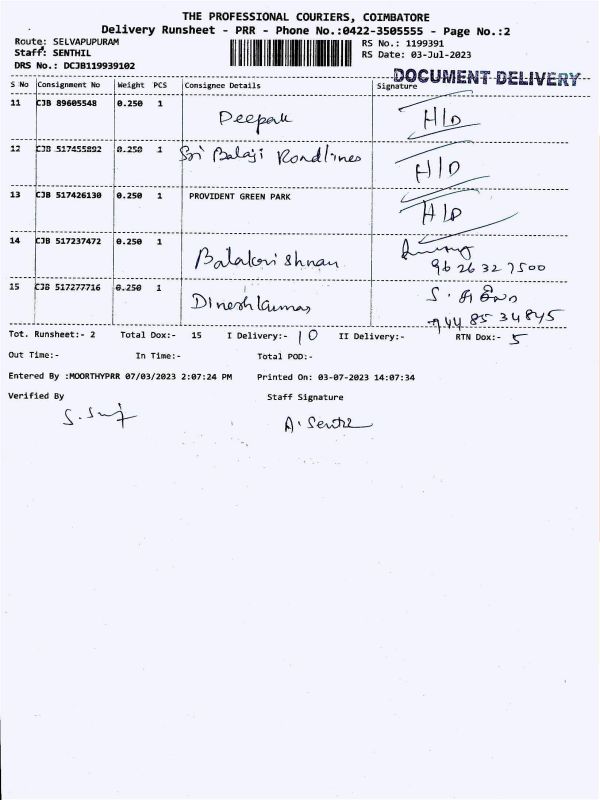 THE PROFESSIONAL COURIERS, COIMBATORE
Delivery Runsheet - PRR - Phone No.:0422-3505555 - Page No.:2
Route: SELVAPUPURAM RS No.: 1199391
Staff: SENTHIL RS Date: 03-Jul-2023
DRS No.: DCJB119939102
DOCUMENT DELIVERY
S No Consignment No Weight PCS Consignee Details Signature
11 CJB 89605548 0.250 1 Deepak H/D
12 CJB 517455892 0.250 1 Sri Balaji Roadlines H/D
13 CJB 517426130 0.250 1 PROVIDENT GREEN PARK H/D
14 CJB 517237472 0.250 1 Balakrishnan
96 26 32 7500
15 CJB 517277716 0.250 1 Dineshkumar S.
944 85 34845
Tot. Runsheet:- 2 Total Dox:- 15 I Delivery:- 10 II Delivery:- RTN Dox:- 5
Out Time:- In Time:- Total POD:-
Entered By :MOORTHYPRR 07/03/2023 2:07:24 PM Printed On: 03-07-2023 14:07:34
Verified By Staff Signature